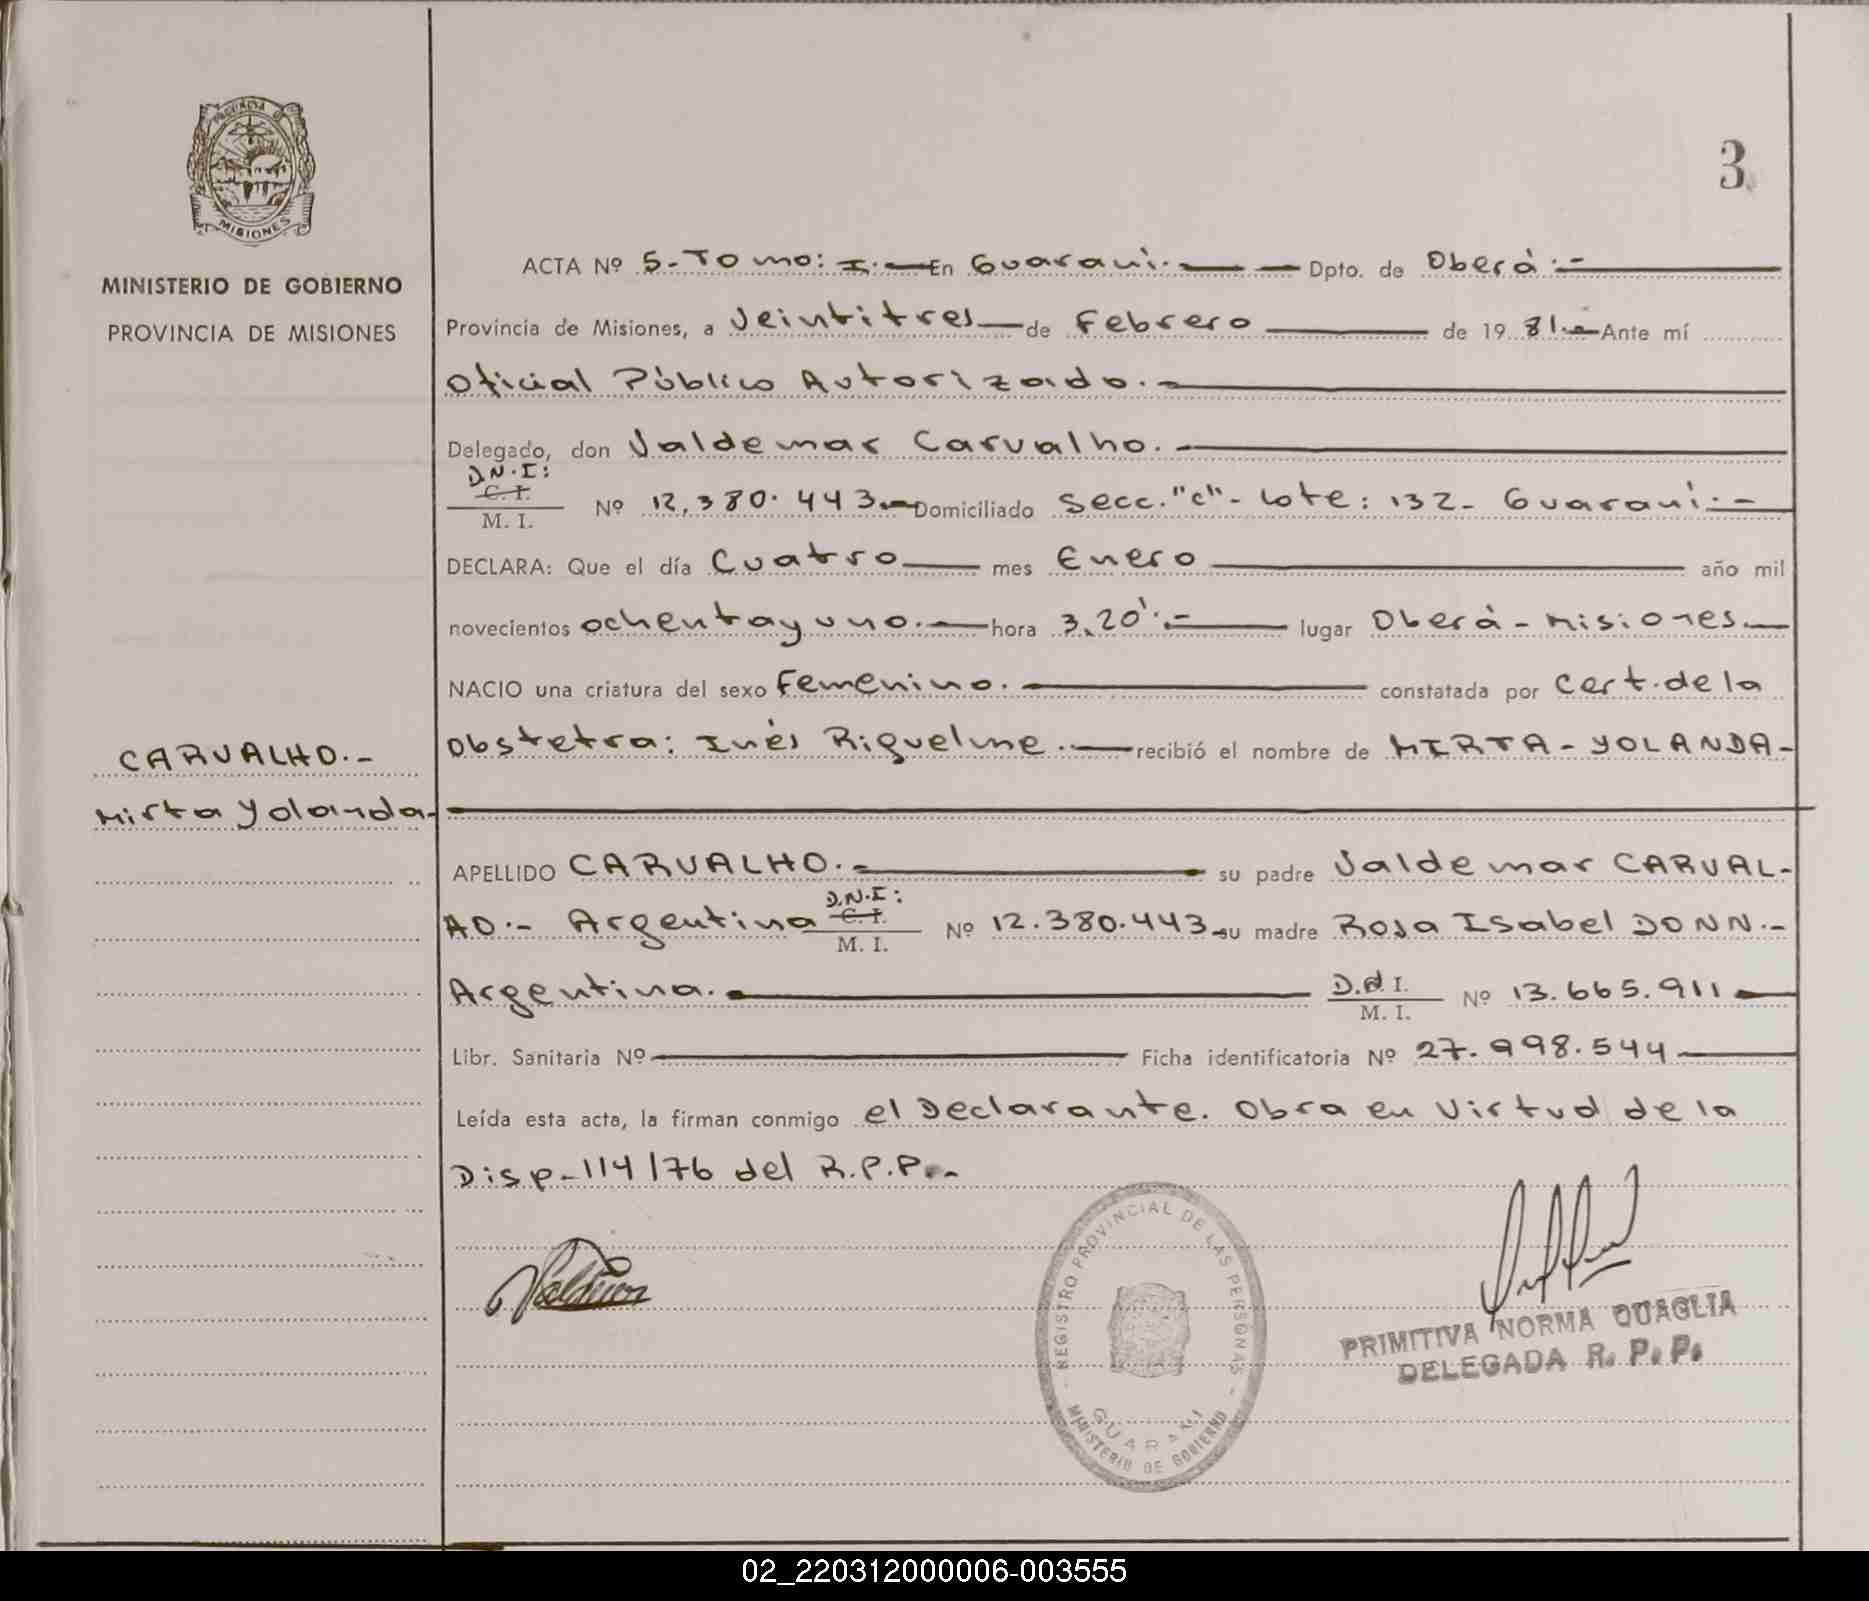 PROVINCIA DE
MISIONES
MINISTERIO DE GOBIERNO
PROVINCIA DE MISIONES
CARVALHO.-
Mirta Yolanda-
3
ACTA Nº 5-Tomo: I.- En Guaraní.- Dpto. de Oberá.-
Provincia de Misiones, a Veintitres de Febrero de 1981.- Ante mí
Oficial Público Autorizado.-
Delegado, don Valdemar Carvalho.-
D.N.I:
C.I.
M. I. Nº 12,380.443.- Domiciliado Secc."C"- Lote: 132- Guaraní.-
DECLARA: Que el día Cuatro mes Enero año mil
novecientos ochentayuno.- hora 3,20'.- lugar Oberá-Misiones.-
NACIO una criatura del sexo Femenino.- constatada por Cert.de la
Obstetra: Inés Riquelme.- recibió el nombre de MIRTA-YOLANDA-
APELLIDO CARVALHO.- su padre Valdemar CARVAL-
HO.- Argentina D.N.I:
C.I.
M. I. Nº 12.380.443- su madre Rosa Isabel DONN.-
Argentina.- D.N.I.
M. I. Nº 13.665.911
Libr. Sanitaria Nº Ficha identificatoria Nº 27.998.544
Leída esta acta, la firman conmigo el Declarante. Obra en Virtud de la
Disp-114/76 del R.P.P.-
REGISTRO PROVINCIAL DE LAS PERSONAS
GUARANI
MINISTERIO DE GOBIERNO
PRIMITIVA NORMA QUAGLIA
DELEGADA R. P. P.
02_220312000006-003555